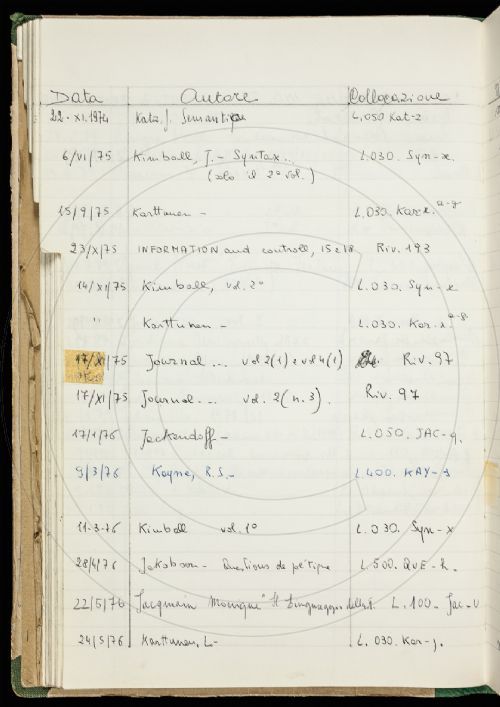 Data Autore Collocazione
22-XI.1974 Katz, J. Semantique L.050 Kat-2
6/VI/75 Kimball, J. - Syntax... L.030. Syn-x.
(solo il 2° vol.)
15/9/75 Karttunen - L.030. Kar-x. a-g
23/X/75 INFORMATION and controll, 15 e 18 Riv. 193
14/XI/75 Kimball, vol. 2° L.030. Syn-x
" Karttunen - L.030. Kar-x. a-g.
17/XI/75 Journal ... vol 2(1) e vol 4(1) Riv. 97
17/XI/75 Journal ... vol. 2(n.3). Riv. 97
17/1/76 Jackendoff - L.050. JAC-q.
9/3/76 Kayne, R.S.- L.400. KAY-1
11-3-76 Kimball vol. 1° L.030. Syn-x
28/4/76 Jakobson - Questions de pétique L.500. QUE-R.
22/5/76 Jacqmain Monique Il linguaggio L. 100. Jac-U
24/5/76 Karttunen, L.- L. 030. Kar-j.